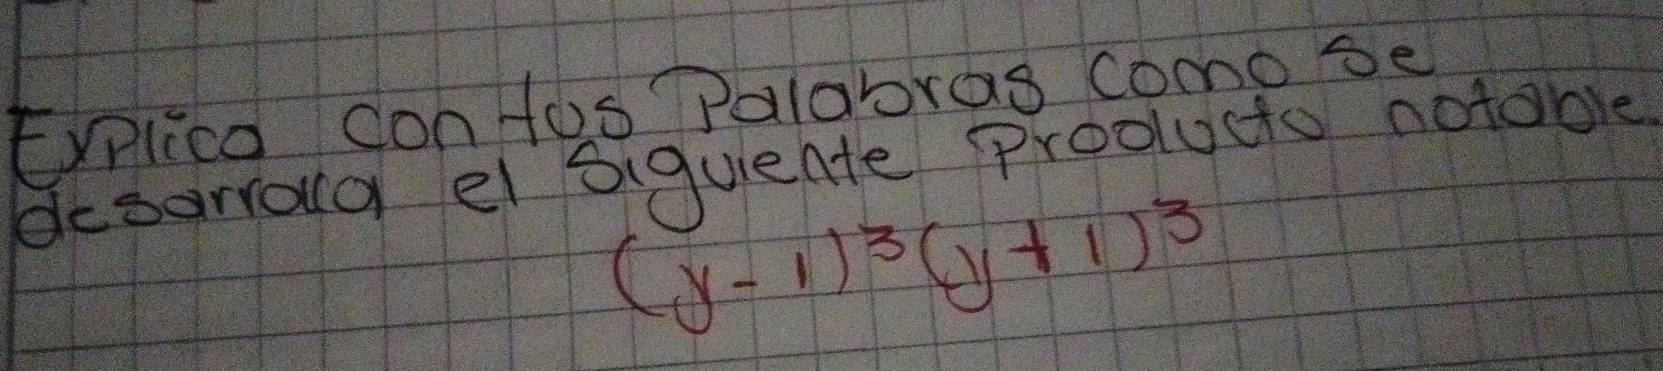 Explica con tus Palabras como se
desarrolla el Siguiente Producto notable.
(y-1)³(y+1)³